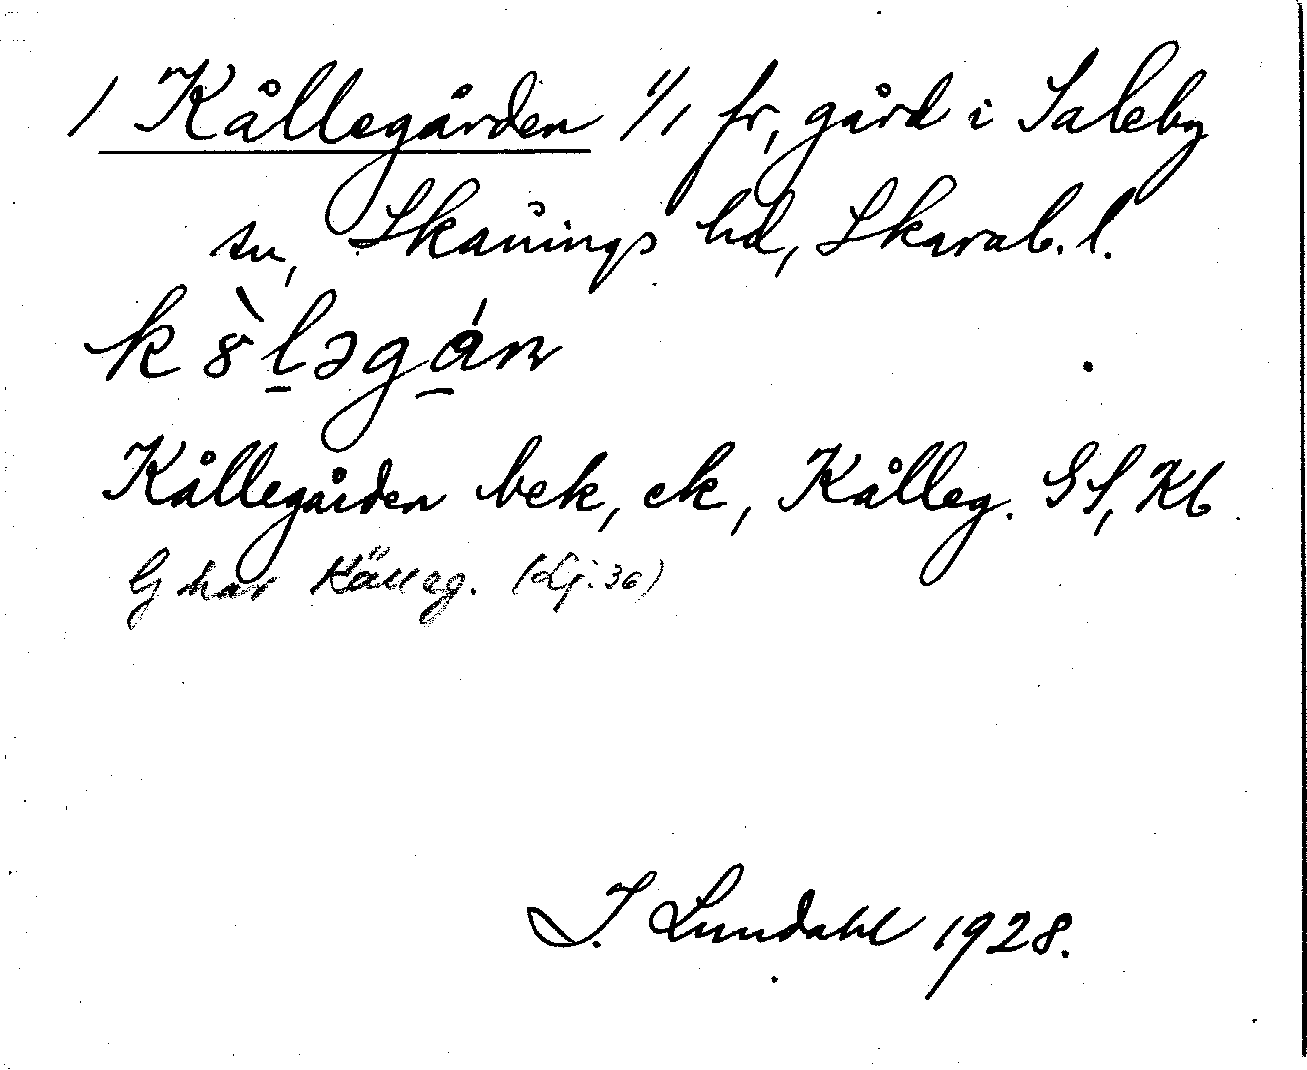 / Kållegården 1/1 fr, gård i Saleby
sn, Skånings hd, Skarab. l.
k8̀l̠əgá̠n
Kållegården bek, ek, Kålleg. GS, Kb
Lj har Källeg. (Lj. 36)
I. Lundahl 1928.